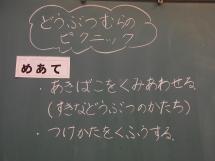 どうぶつむらの
ピクニック
めあて
・あきばこをくみあわせる
(すきなどうぶつのかたち)
・つけかたをくふうする。